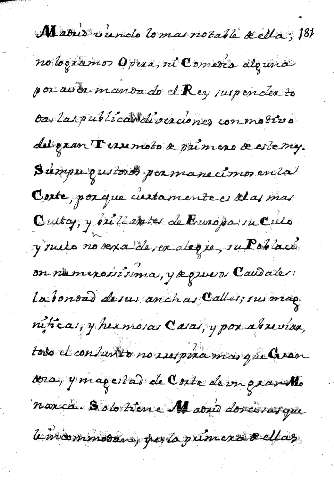 Madrid viendo lo mas notable de ella; 181
no logramos Opera, ni Comedia alguna
por aver mandado el Rey suspender to
das las publicas diverciones con motivo
del gran Terremoto de primero de este mes.
Siempre gustosos permanecimos en la
Corte, porque ciertamente es de las mas
Cultas, y brillantes de Europa: su Cielo
y suelo no dexa de ser alegre, su Poblaci
on numerosissima, y de gruesos Caudales:
la bondad de sus anchas Calles; sus mag
nificas, y hermosas Casas, y por abreviar,
todo el conjunto no respira mas que Gran
deza, y magestad de Corte de un gran Mo
narca. Solo tiene Madrid dos cosas que
le incommodan, por la primera de ellas